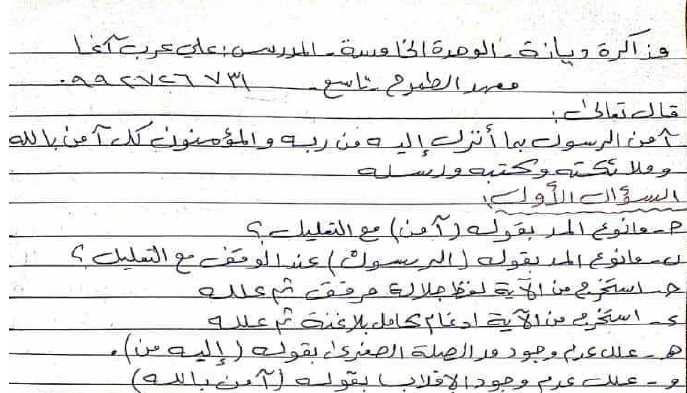 مذاكرة ديانة - الوحدة الخامسة - المدرس: علي عرب آغا
معهد الطموح - تاسع - ٠٩٩٢٧٢٦٧٣١
قال تعالى:
آمن الرسول بما أنزل إليه من ربه والمؤمنون كل آمن بالله
وملائكته وكتبه ورسله
السؤال الأول:
ما نوع المد بقوله (آمن) مع التعليل؟
ب- ما نوع المد بقوله (الرسول) عند الوقف مع التعليل؟
استخرج من الآية لفظ جلالة مرقق ثم علله
د- استخرج من الآية ادغام كامل بلا غنة ثم علله
هـ- علل عدم وجود مد الصلة الصغرى بقوله (إليه من).
و- علل عدم وجود الإقلاب بقوله (آمن بالله)